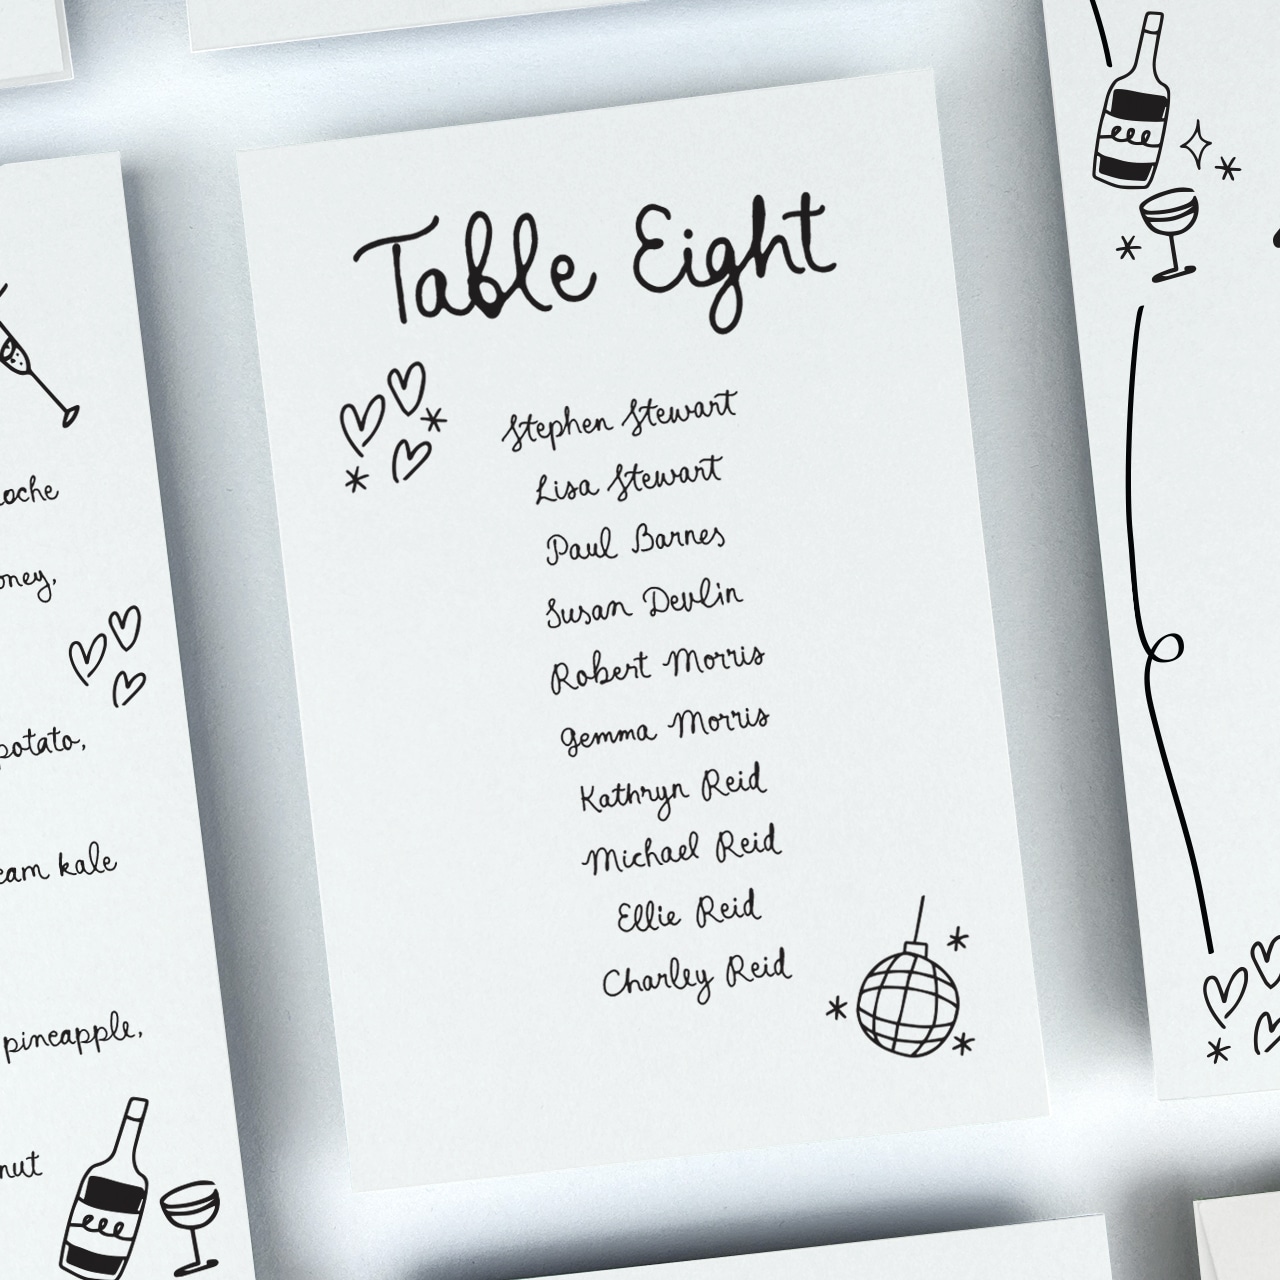 Table Eight
Stephen Stewart
Lisa Stewart
Paul Barnes
Susan Devlin
Robert Morris
Gemma Morris
Kathryn Reid
Michael Reid
Ellie Reid
Charley Reid
potato,
kale
pineapple,